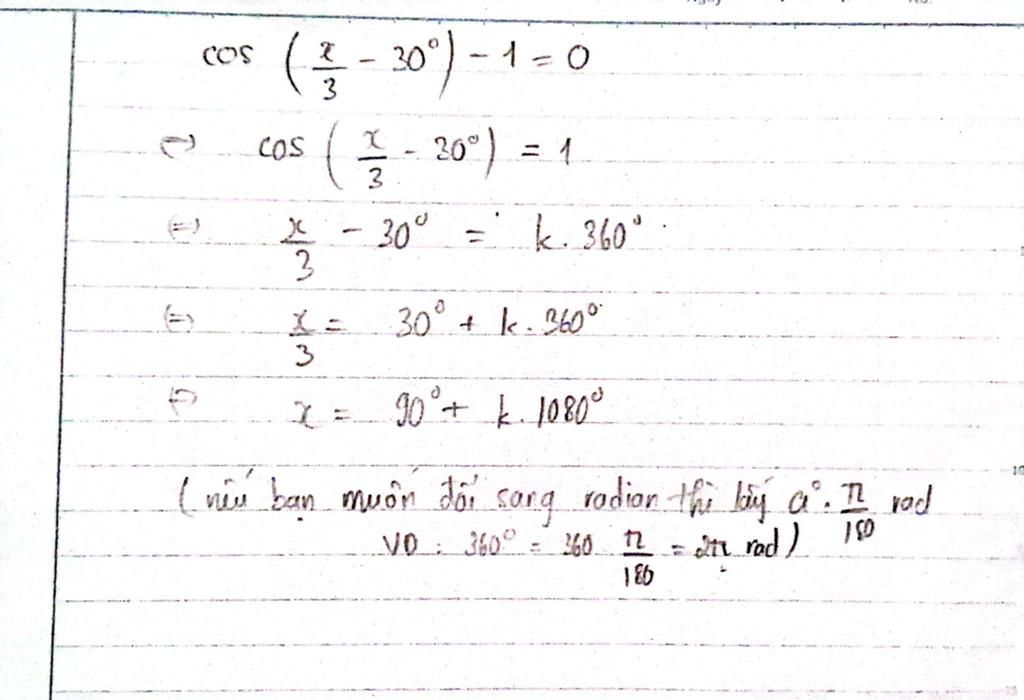 cos (x/3 - 30°) - 1 = 0
⇔ cos (x/3 - 30°) = 1
⇔ x/3 - 30° = k. 360°
⇔ x/3 = 30° + k. 360°
⇔ x = 90° + k. 1080°
(nếu bạn muốn đổi sang radian thì lấy a°. π/180 rad
VD : 360° = 360 π/180 = 2π rad)